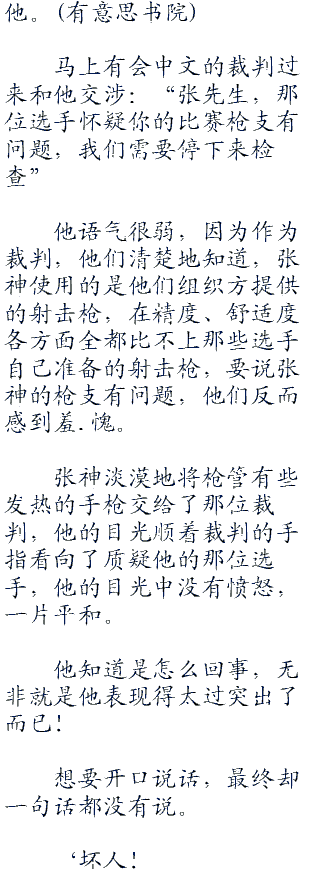 他。(有意思书院)
马上有会中文的裁判过
来和他交涉：“张先生，那
位选手怀疑你的比赛枪支有
问题，我们需要停下来检
查”
他语气很弱，因为作为
裁判，他们清楚地知道，张
神使用的是他们组织方提供
的射击枪，在精度、舒适度
各方面全都比不上那些选手
自己准备的射击枪，要说张
神的枪支有问题，他们反而
感到羞.愧。
张神淡漠地将枪管有些
发热的手枪交给了那位裁
判，他的目光顺着裁判的手
指看向了质疑他的那位选
手，他的目光中没有愤怒，
一片平和。
他知道是怎么回事，无
非就是他表现得太过突出了
而已！
想要开口说话，最终却
一句话都没有说。
‘坏人！